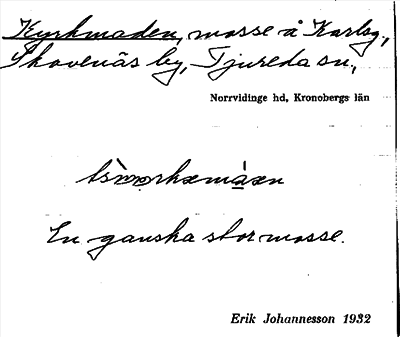 Kyrkmaden, mosse å Karlsg.,
Skovenäs by, Tjureda sn.,
Norrvidinge hd, Kronobergs län
En ganska stor mosse.
Erik Johannesson 1932